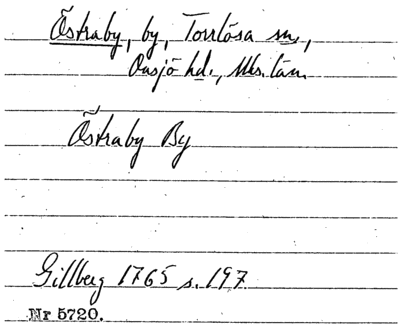 Östraby, by, Torrlösa sn,
Onsjö hd., Mlm. län
Östraby By
Gillberg 1765 s. 197
Nr 5720.